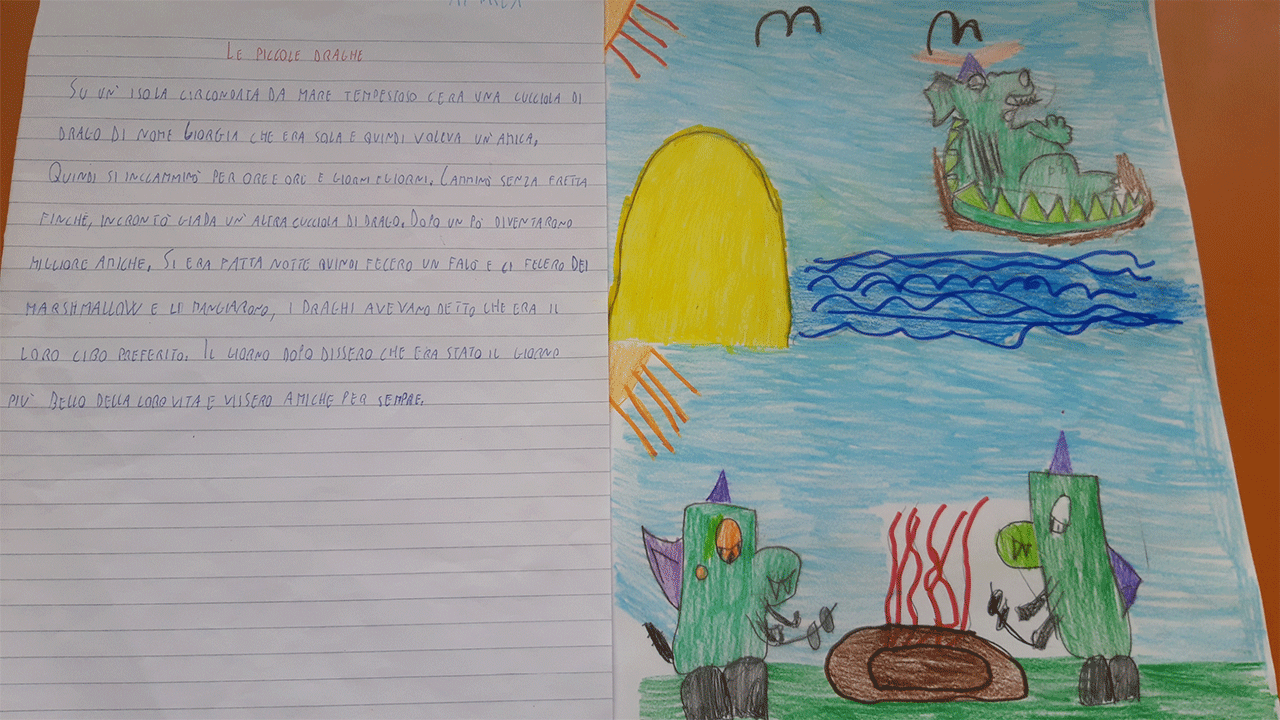 LE PICCOLE DRAGHE
SU UN' ISOLA CIRCONDATA DA MARE TEMPESTOSO C'ERA UNA CUCCIOLA DI
DRAGO DI NOME GIORGIA CHE ERA SOLA E QUINDI VOLEVA UN'AMICA.
QUINDI SI INCAMMINÒ PER ORE E ORE E GIORNI E GIORNI. CAMMINÒ SENZA FRETTA
FINCHE, INCRONTÒ GIADA UN' ALTRA CUCCIOLA DI DRAGO. DOPO UN PÒ DIVENTARONO
MIGLIORE AMICHE. SI ERA FATTA NOTTE QUINDI FECERO UN FALÒ E CI FECERO DEI
MARSHMALLOW E LI MANGIARONO, I DRAGHI AVEVANO DETTO CHE ERA IL
LORO CIBO PREFERITO. IL GIORNO DOPO DISSERO CHE ERA STATO IL GIORNO
PIU' BELLO DELLA LORO VITA E VISSERO AMICHE PER SEMPRE.